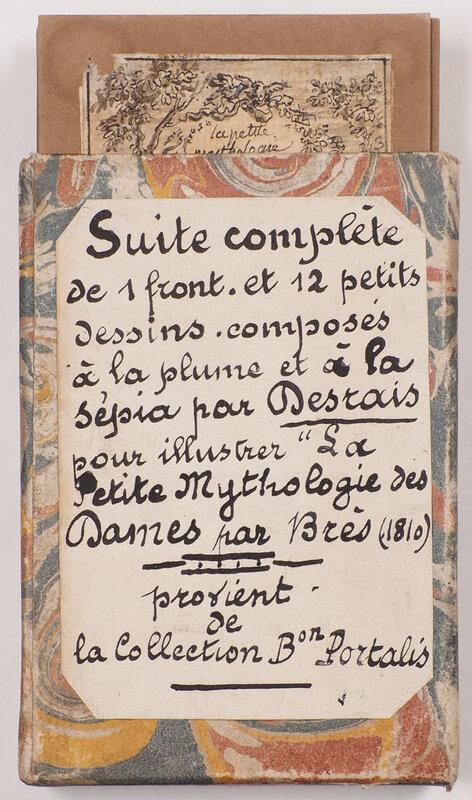 la petite
mythologie
Suite complète
de 1 front. et 12 petits
dessins. composés
à la plume et à la
sépia par Desrais
pour illustrer "La
Petite Mythologie des
Dames par Brès (1810)
provient.
de
la Collection Bon Portalis